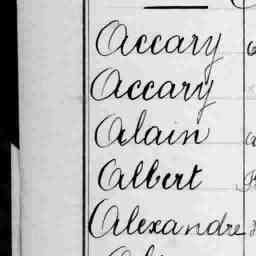 Accary
Accary
Alain
Albert
Alexandre